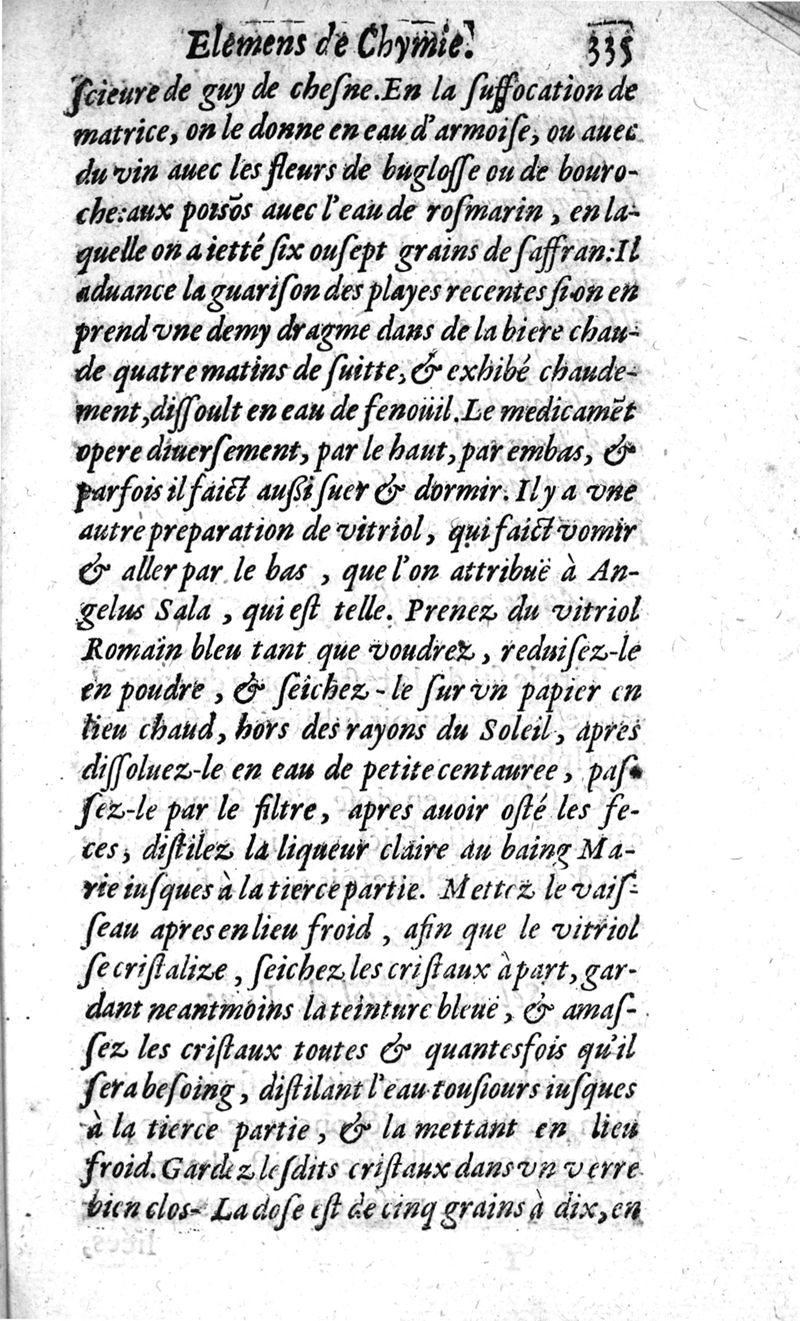 Elemens de Chymie. 335
ſcieure de guy de cheſne. En la ſuffocation de
matrice, on le donne en eau d'armoiſe, ou auec
du vin auec les fleurs de bugloſſe ou de bouro-
che: aux poisõs auec l'eau de roſmarin, en la-
quelle on a ietté ſix ou ſept grains de ſaffran: Il
aduance la guariſon des playes recentes ſi on en
prend vne demy dragme dans de la biere chau-
de quatre matins de ſuitte, & exhibé chaude-
ment, diſſoult en eau de fenoüil. Le medicamẽt
opere diuerſement, par le haut, par embas, &
parfois il faict auſſi ſuer & dormir. Il y a vne
autre preparation de vitriol, qui faict vomir
& aller par le bas, que l'on attribuë à An-
gelus Sala, qui eſt telle. Prenez du vitriol
Romain bleu tant que voudrez, reduiſez-le
en poudre, & ſeichez-le ſur vn papier en
lieu chaud, hors des rayons du Soleil, apres
diſſoluez-le en eau de petite centauree, paſ-
ſez-le par le filtre, apres auoir oſté les fe-
ces, diſtilez la liqueur claire au baing Ma-
rie iuſques à la tierce partie. Mettez le vaiſ-
ſeau apres en lieu froid, afin que le vitriol
ſe criſtalize, ſeichez les criſtaux à part, gar-
dant neantmoins la teinture bleuë, & amaſ-
ſez les criſtaux toutes & quantesfois qu'il
ſera beſoing, diſtilant l'eau touſiours iuſques
à la tierce partie, & la mettant en lieu
froid. Gardez leſdits criſtaux dans vn verre
bien clos- La doſe eſt de cinq grains à dix, en